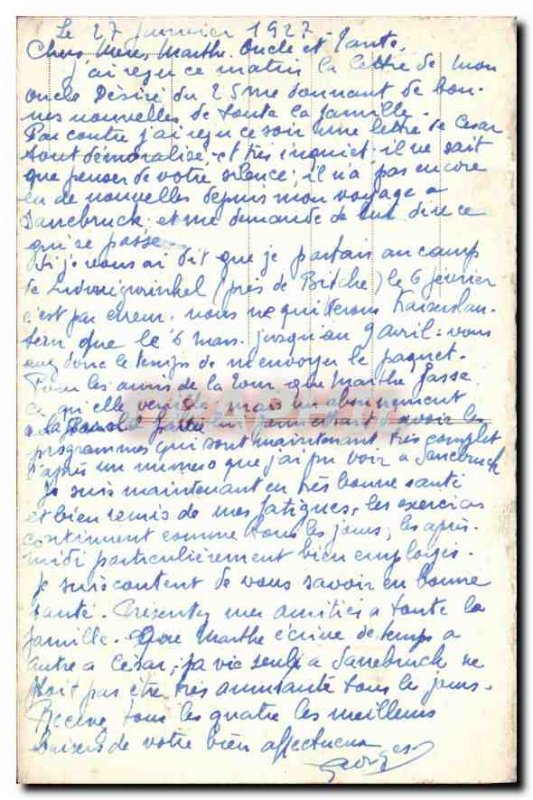 Le 27 Janvier 1927.
Chers Mères, Marthe, Oncle et Tante,
j'ai reçu ce matin la lettre de mon
oncle Désiré du 25 me donnant de bon-
nes nouvelles de toute la famille.
Par contre j'ai reçu ce soir une lettre de César
tout démoralisé et très inquiet il ne sait
que penser de votre silence, il n'a pas encore
eu de nouvelles depuis mon voyage à
Sarrebruck et me demande de lui dire ce
qui se passe.
Si je vous ai dit que je partais au camp
de Ludwigwinkel (près de Bitche) le 6 février
c'est par erreur, nous ne quitterons Kaiserslau-
tern que le 6 mars jusqu'au 9 avril: vous
avez donc le temps de m'envoyer le paquet.
Pour les amis de la Tour que Marthe fasse
ce qu'elle mais un abonnement
savoir les
programmes qui sont maintenant très complet
d'après un numéro que j'ai pu voir à Sarrebruck
Je suis maintenant en très bonne santé
et bien remis de mes fatigues, les exercices
continuent comme tous les jours, les après-
midi particulièrement bien employés.
Je suis content de vous savoir en bonne
santé. Présentez mes amitiés à toute la
famille. Que Marthe écrive de temps à
autre à César, sa vie seule à Sarrebruck ne
doit pas être très amusante tous les jours.
Recevez tous les quatre les meilleurs
baisers de votre bien affectueux